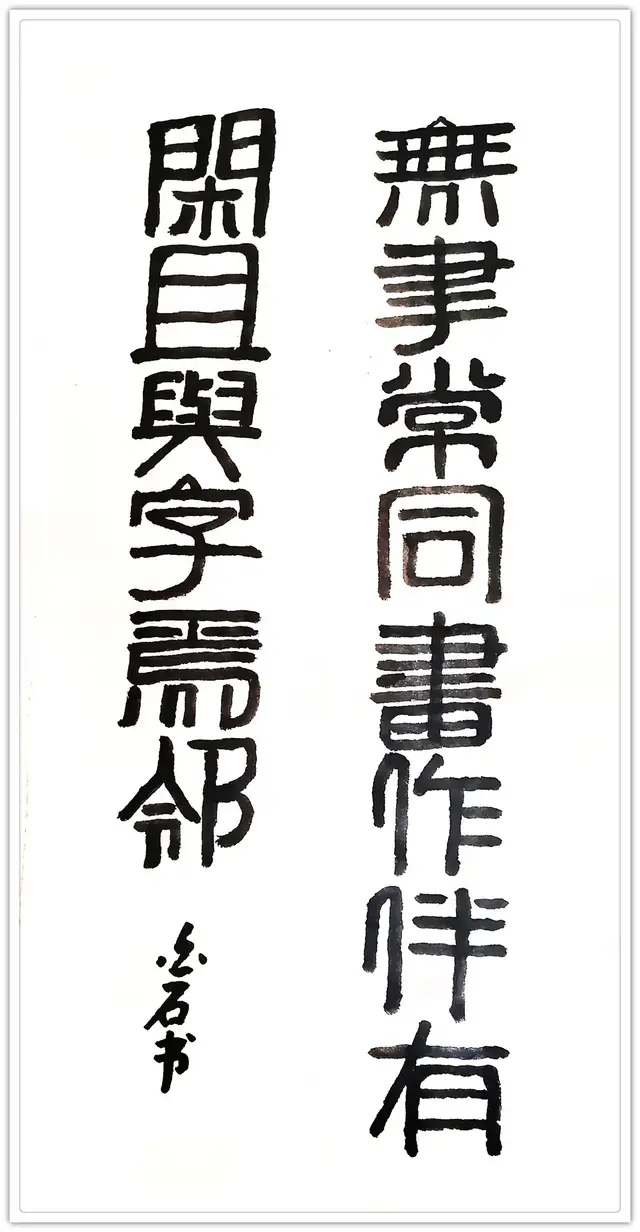 無事常同書作伴有
閑且與字為邻
金石书